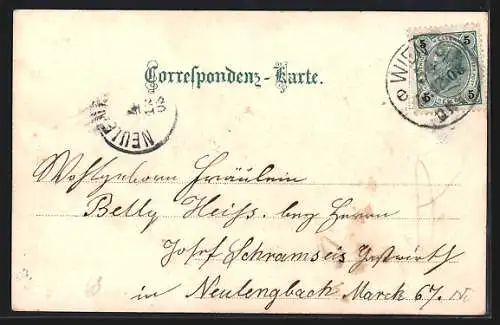 5 5
5 5
WIEN
Correspondenz-Karte.
NEULENG
Wohlgeboren Fräulein
Betty Heiss. bey Herrn
Josef Schramseis Gastwirth
in Neulengbach Marck 67. N